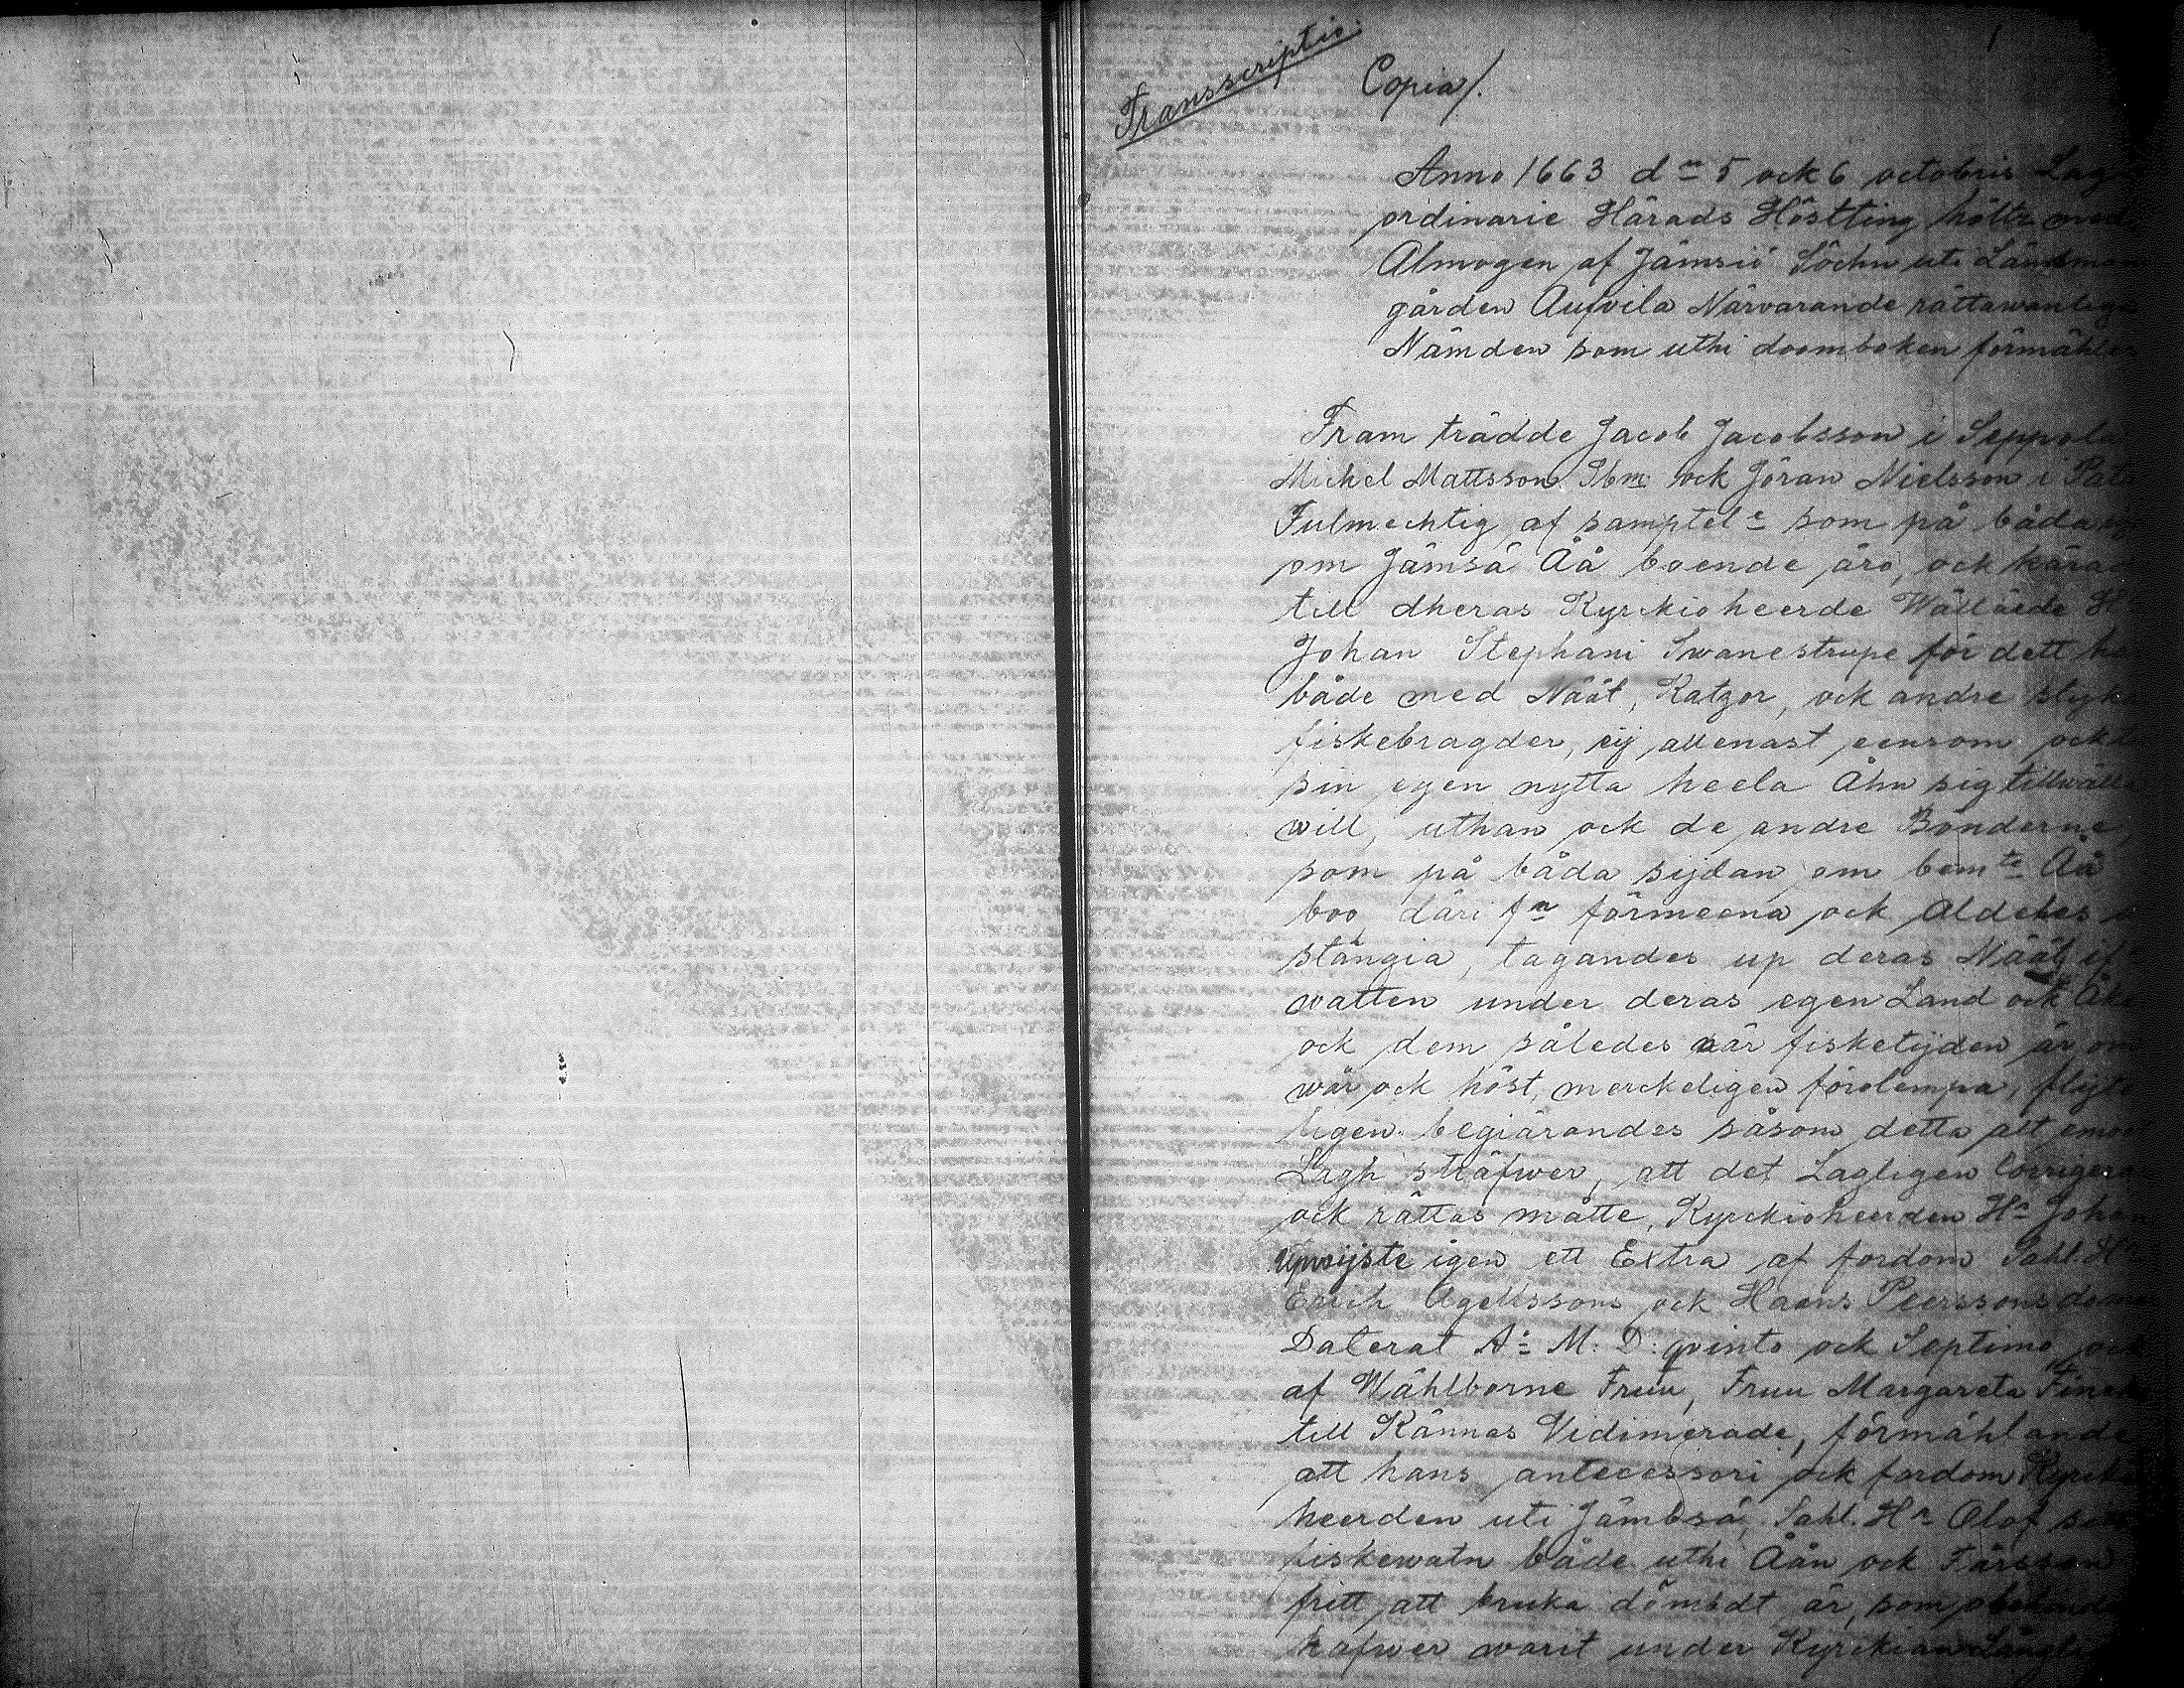 1
Transscriptio
Copia/.
Anno 1663 dn 5 ock 6 octobris Lag
ordinarie Härads Höstting höltz med
Almogen af Jämsiö Söchn uti Länsman
gården Aufvila Närvarande rättawanlige
Nämden som uthi doomboken förmähles
Fram trädde Jacob Jacobsson i Seppola
Michel Mattsson Ibm ock Jöran Nielsson i Pat
Fulmechtig af samptele som på båda
om Jämsä Åå boende äro, ock kära
till dheras Kyrckioheerde Wälläede H
Johan Stephani Swanestrupe för dett ha
både med Näät, Katzor, ock andre slyka
fiskebragder, eij allenast eensom ock
sin egen nytta heela Åhn sig tillwälla
will, uthan ock de andre Bönderne,
som på båda sijdan om bemte Åå
boo däri fn förmeena ock Aldeles
stängia, tagandes up deras Näät if
watten under deras egen Land ock Åke
ock dem således når fisketijden är om
wår ock höst, merckeligen förolempa, flijte
ligen begiärandes såsom detta alt emot
Lagh sträfwer, att det Lagligen Corrigera
ock rättas måtte, Kyrckioheerden Hr Johan
upwijste igen ett Extra af fordom Sahl. Hr
Erich Agellssons ock Haans Peerssons dom
Daterat Ao M. D: qvinto ock Septimo ock
af Wählborne Fruu, Fruu Margareta Finck
till Kännäs Vidimerade, förmählande
att hans antecessori ock fordom Kyrckio
heerden uti Jämbsä, Sahl. Hr Olof
fiskewatn både uthi Åån ock Färssen
fritt att bruka dömbdt är, som
hafwer warit under Kyrckian